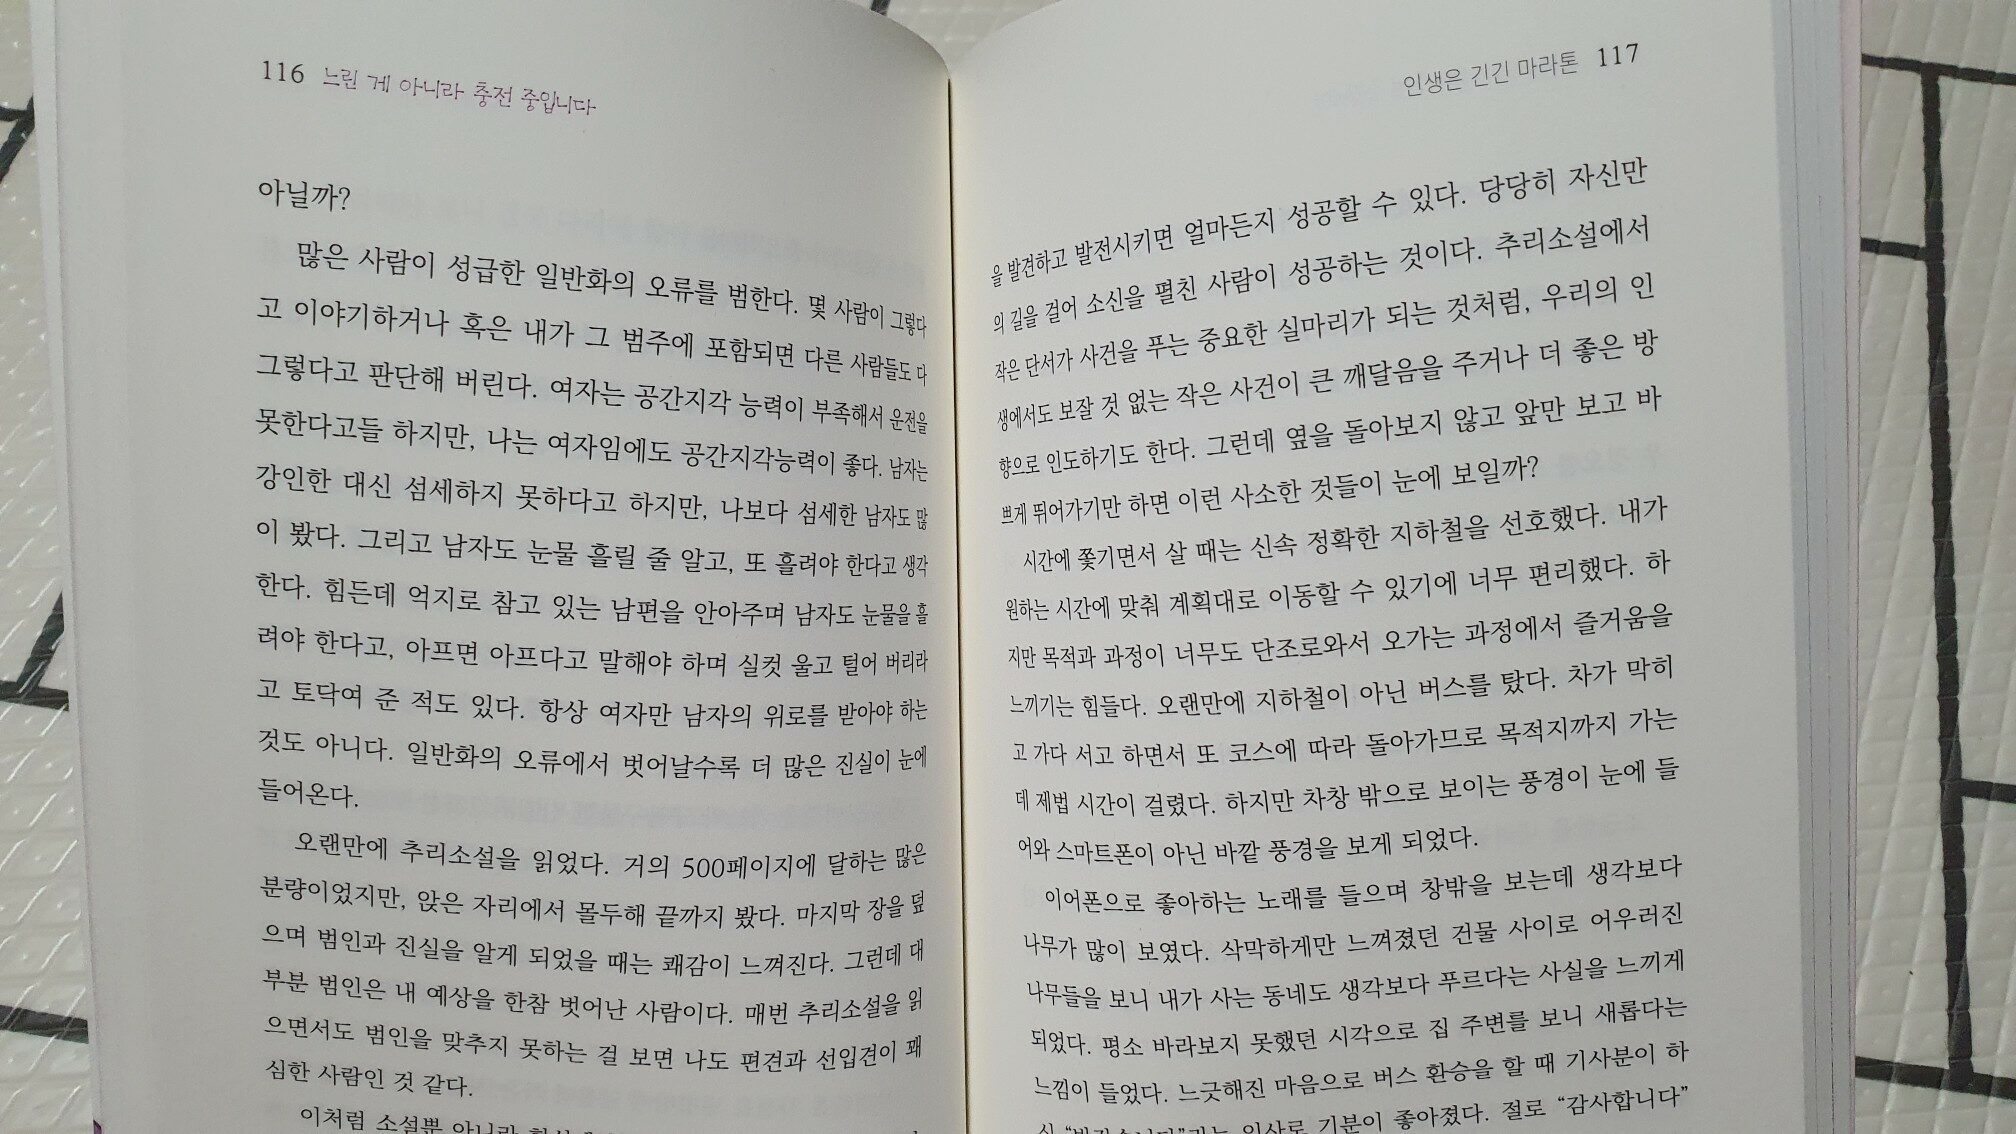 116 느린 게 아니라 충전 중입니다
아닐까?
많은 사람이 성급한 일반화의 오류를 범한다. 몇 사람이 그렇다
고 이야기하거나 혹은 내가 그 범주에 포함되면 다른 사람들도 다
그렇다고 판단해 버린다. 여자는 공간지각 능력이 부족해서 운전을
못한다고들 하지만, 나는 여자임에도 공간지각능력이 좋다. 남자는
강인한 대신 섬세하지 못하다고 하지만, 나보다 섬세한 남자도 많
이 봤다. 그리고 남자도 눈물 흘릴 줄 알고, 또 흘려야 한다고 생각
한다. 힘든데 억지로 참고 있는 남편을 안아주며 남자도 눈물을 흘
려야 한다고, 아프면 아프다고 말해야 하며 실컷 울고 털어 버리라
고 토닥여 준 적도 있다. 항상 여자만 남자의 위로를 받아야 하는
것도 아니다. 일반화의 오류에서 벗어날수록 더 많은 진실이 눈에
들어온다.
오랜만에 추리소설을 읽었다. 거의 500페이지에 달하는 많은
분량이었지만, 앉은 자리에서 몰두해 끝까지 봤다. 마지막 장을 덮
으며 범인과 진실을 알게 되었을 때는 쾌감이 느껴진다. 그런데 대
부분 범인은 내 예상을 한참 벗어난 사람이다. 매번 추리소설을 읽
으면서도 범인을 맞추지 못하는 걸 보면 나도 편견과 선입견이 꽤
심한 사람인 것 같다.
이처럼 소설뿐 아니라
인생은 긴긴 마라톤 117
을 발견하고 발전시키면 얼마든지 성공할 수 있다. 당당히 자신만
의 길을 걸어 소신을 펼친 사람이 성공하는 것이다. 추리소설에서
작은 단서가 사건을 푸는 중요한 실마리가 되는 것처럼, 우리의 인
생에서도 보잘 것 없는 작은 사건이 큰 깨달음을 주거나 더 좋은 방
향으로 인도하기도 한다. 그런데 옆을 돌아보지 않고 앞만 보고 바
쁘게 뛰어가기만 하면 이런 사소한 것들이 눈에 보일까?
시간에 쫓기면서 살 때는 신속 정확한 지하철을 선호했다. 내가
원하는 시간에 맞춰 계획대로 이동할 수 있기에 너무 편리했다. 하
지만 목적과 과정이 너무도 단조로와서 오가는 과정에서 즐거움을
느끼기는 힘들다. 오랜만에 지하철이 아닌 버스를 탔다. 차가 막히
고 가다 서고 하면서 또 코스에 따라 돌아가므로 목적지까지 가는
데 제법 시간이 걸렸다. 하지만 차창 밖으로 보이는 풍경이 눈에 들
어와 스마트폰이 아닌 바깥 풍경을 보게 되었다.
이어폰으로 좋아하는 노래를 들으며 창밖을 보는데 생각보다
나무가 많이 보였다. 삭막하게만 느껴졌던 건물 사이로 어우러진
나무들을 보니 내가 사는 동네도 생각보다 푸르다는 사실을 느끼게
되었다. 평소 바라보지 못했던 시각으로 집 주변을 보니 새롭다는
느낌이 들었다. 느긋해진 마음으로 버스 환승을 할 때 기사분이 하
인사로 기분이 좋아졌다. 절로 “감사합니다”